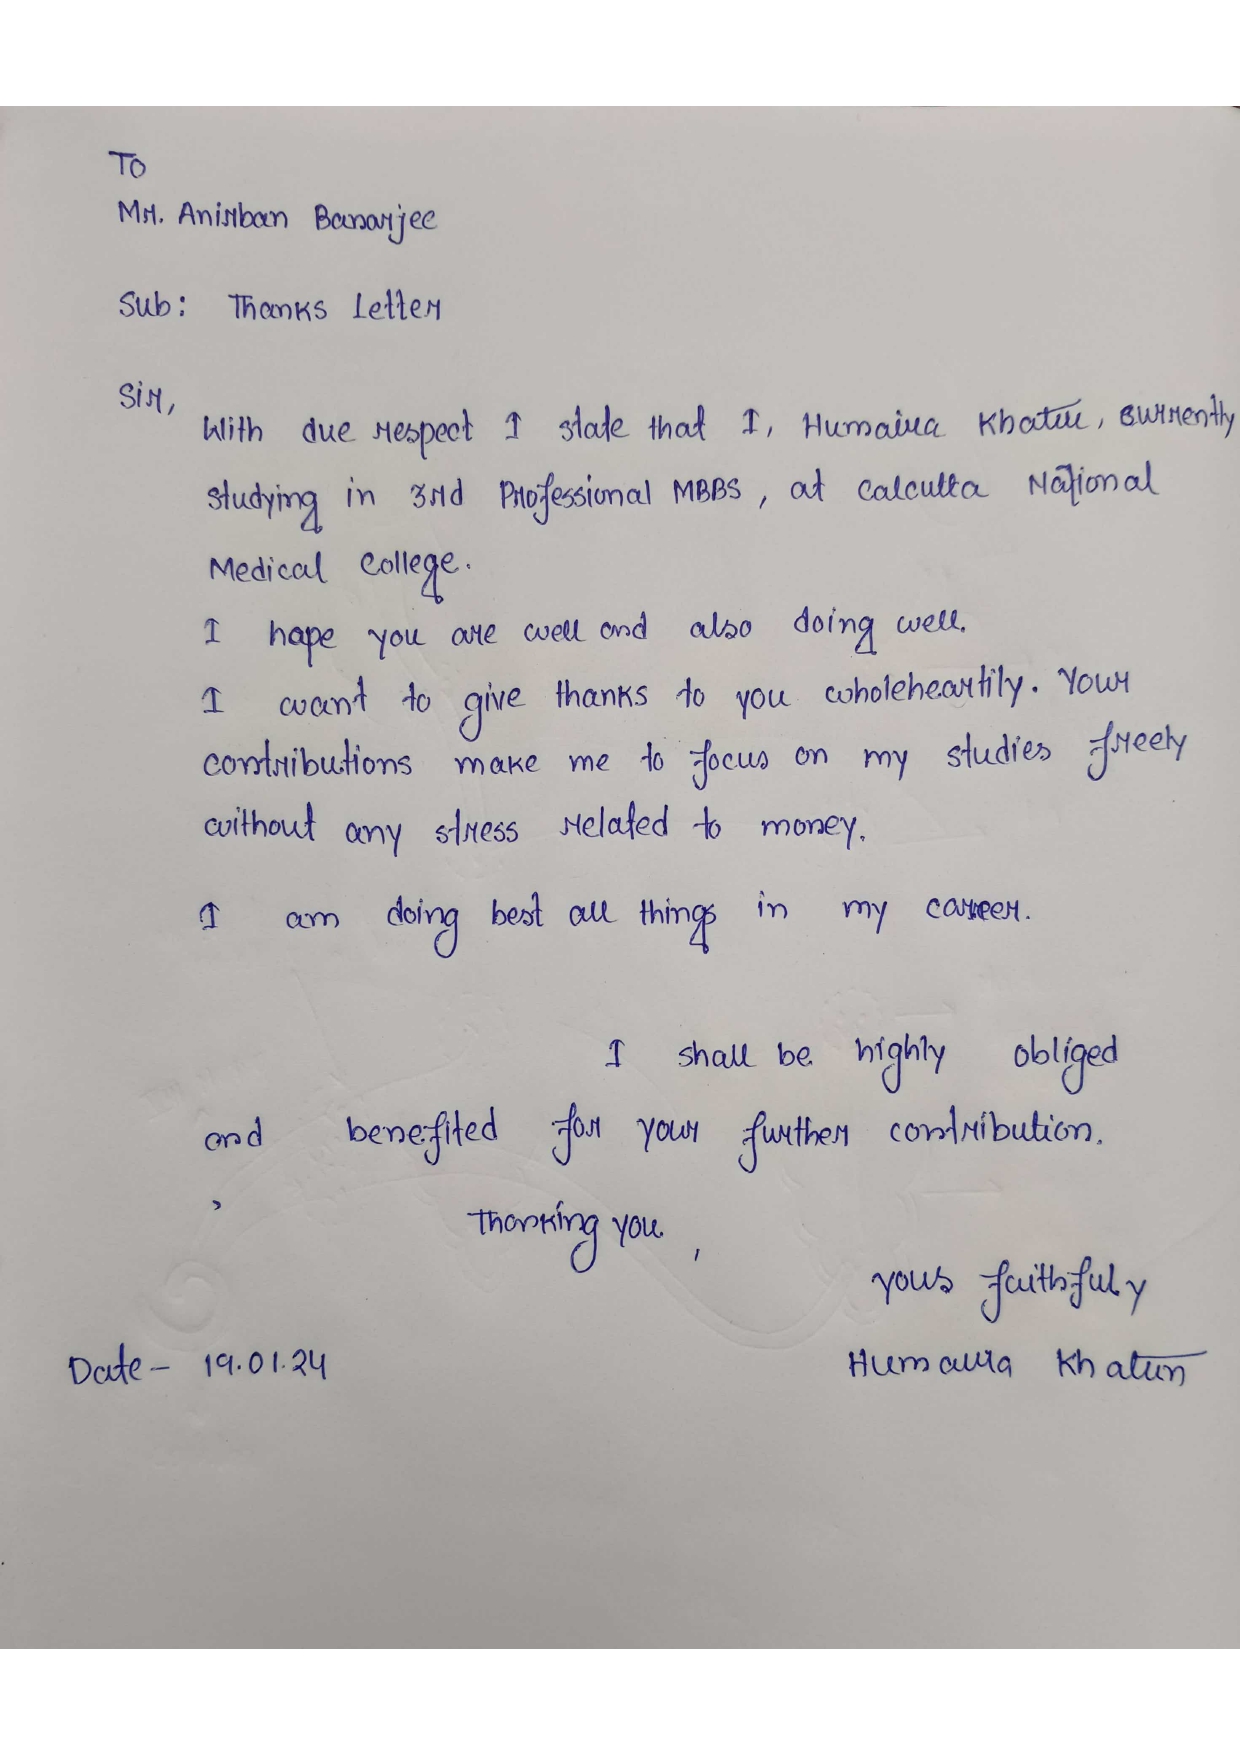 To
Mr. Anirban Banarjee
Sub: Thanks Letter
Sir,
With due respect I state that I, Humaira Khatun, currently
studying in 3rd Professional MBBS, at Calcutta National
Medical College.
I hope you are well and also doing well.
I want to give thanks to you wholeheartily. Your
contributions make me to focus on my studies freely
without any stress related to money.
I am doing best all things in my career.
I shall be highly obliged
and benefited for your further contribution.
Thanking you,
yous faithfuly
Humaira Khatun
Date - 19.01.24